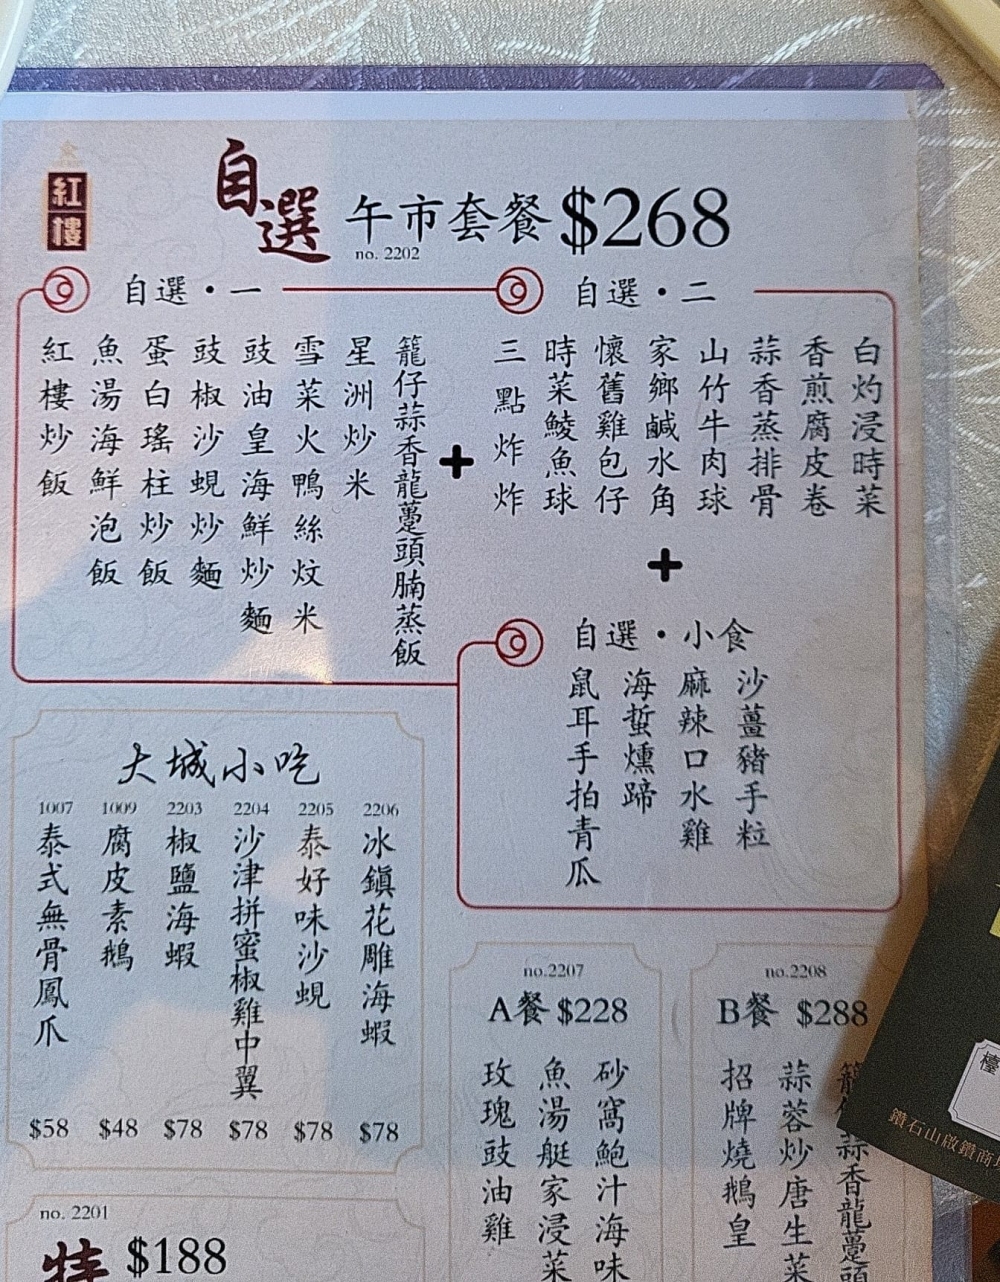 紅樓
自選 午市套餐 $268
no. 2202
自選・一
籠仔蒜香龍躉頭腩蒸飯
星洲炒米
雪菜火鴨絲炆米
豉油皇海鮮炒麵
豉椒沙蜆炒麵
蛋白瑤柱炒飯
魚湯海鮮泡飯
紅樓炒飯
+
自選・二
白灼浸時菜
香煎腐皮卷
蒜香蒸排骨
山竹牛肉球
家鄉鹹水角
懷舊雞包仔
時菜鯪魚球
三點炸炸
+
自選・小食
沙薑豬手粒
麻辣口水雞
海蜇燻蹄
鼠耳手拍青瓜
大城小吃
2206
冰鎮花雕海蝦
$78
2205
泰好味沙蜆
$78
2204
沙津拼蜜椒雞中翼
$78
2203
椒鹽海蝦
$78
1009
腐皮素鵝
$48
1007
泰式無骨鳳爪
$58
no.2207
A餐 $228
砂窩鮑汁海味
魚湯艇家浸菜
玫瑰豉油雞
no.2208
B餐 $288
蒜香龍躉頭
蒜蓉炒唐生菜
招牌燒鵝皇
no. 2201
特 $188
檯
鑽石山啟鑽商